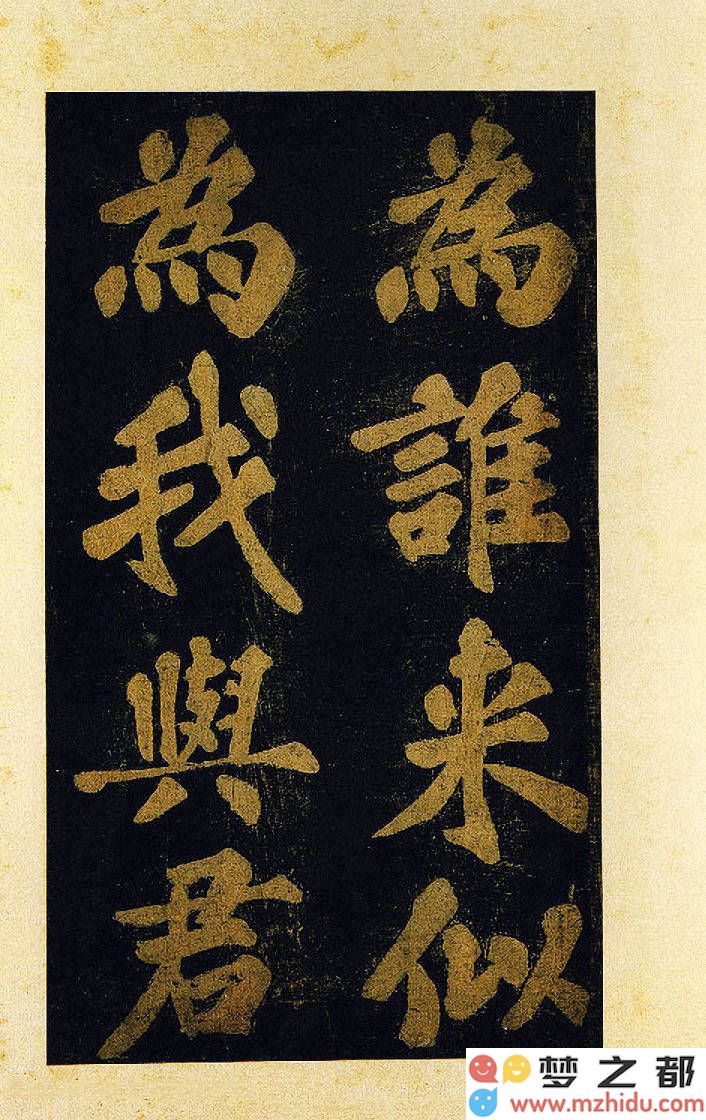 為誰来似
為我與君
梦之都
www.mzhidu.com